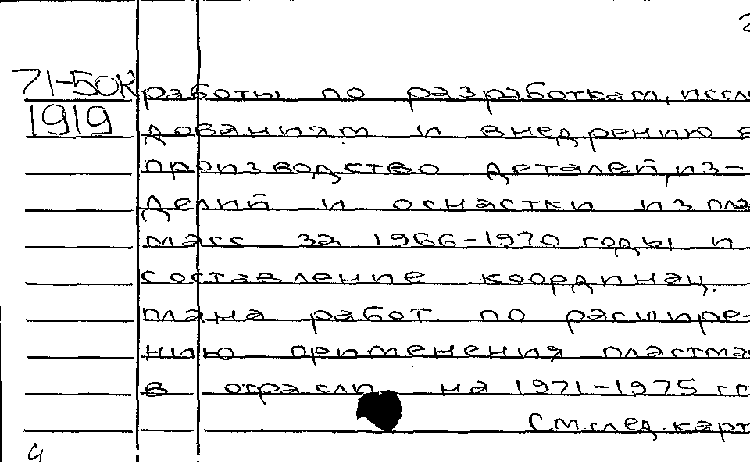 71-50К работы по разработкам, иссле
1919 дованиям и внедрению в
производство деталей, из-
делий и оснастки из пла
масс за 1966-1970 годы и
составление координац.
плана работ по расшире-
нию применения пластма
в отрасли на 1971-1975 гг
См. след. карт